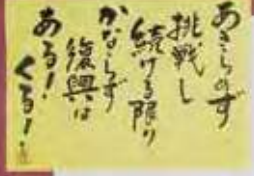 あきらめず
挑戦し
続ける限り
かならず
復興は
ある!
くる!